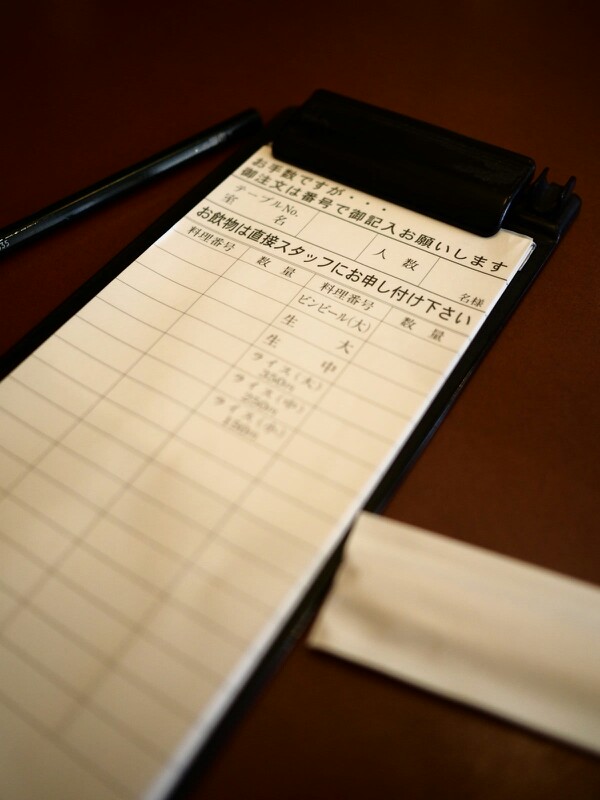 お手数ですが・・・
御注文は番号で御記入お願いします
テーブルNo.
室 名
人 数
名様
お飲物は直接スタッフにお申し付け下さい
料理番号 数 量 料理番号 数 量
ビンビール(大)
生 大
生 中
ライス(大)
350g
ライス(中)
250g
ライス(小)
150g